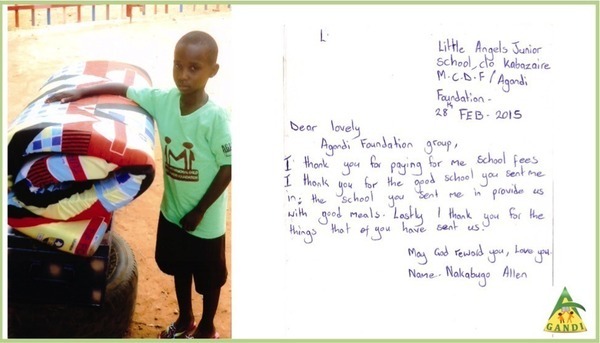 L.
Little Angels Junior
School, c/o Kabazaire
M.C.D.F / Agandi
Foundation -
28th FEB - 2015
Dear lovely
Agandi Foundation group,
I thank you for paying for me school fees
I thank you for the good school you sent me
in: the school you sent me in provide us
with good meals. Lastly I thank you for the
things that of you have sent us.
May God reward you, Love you.
Name - Nakabugo Allen
GANDI